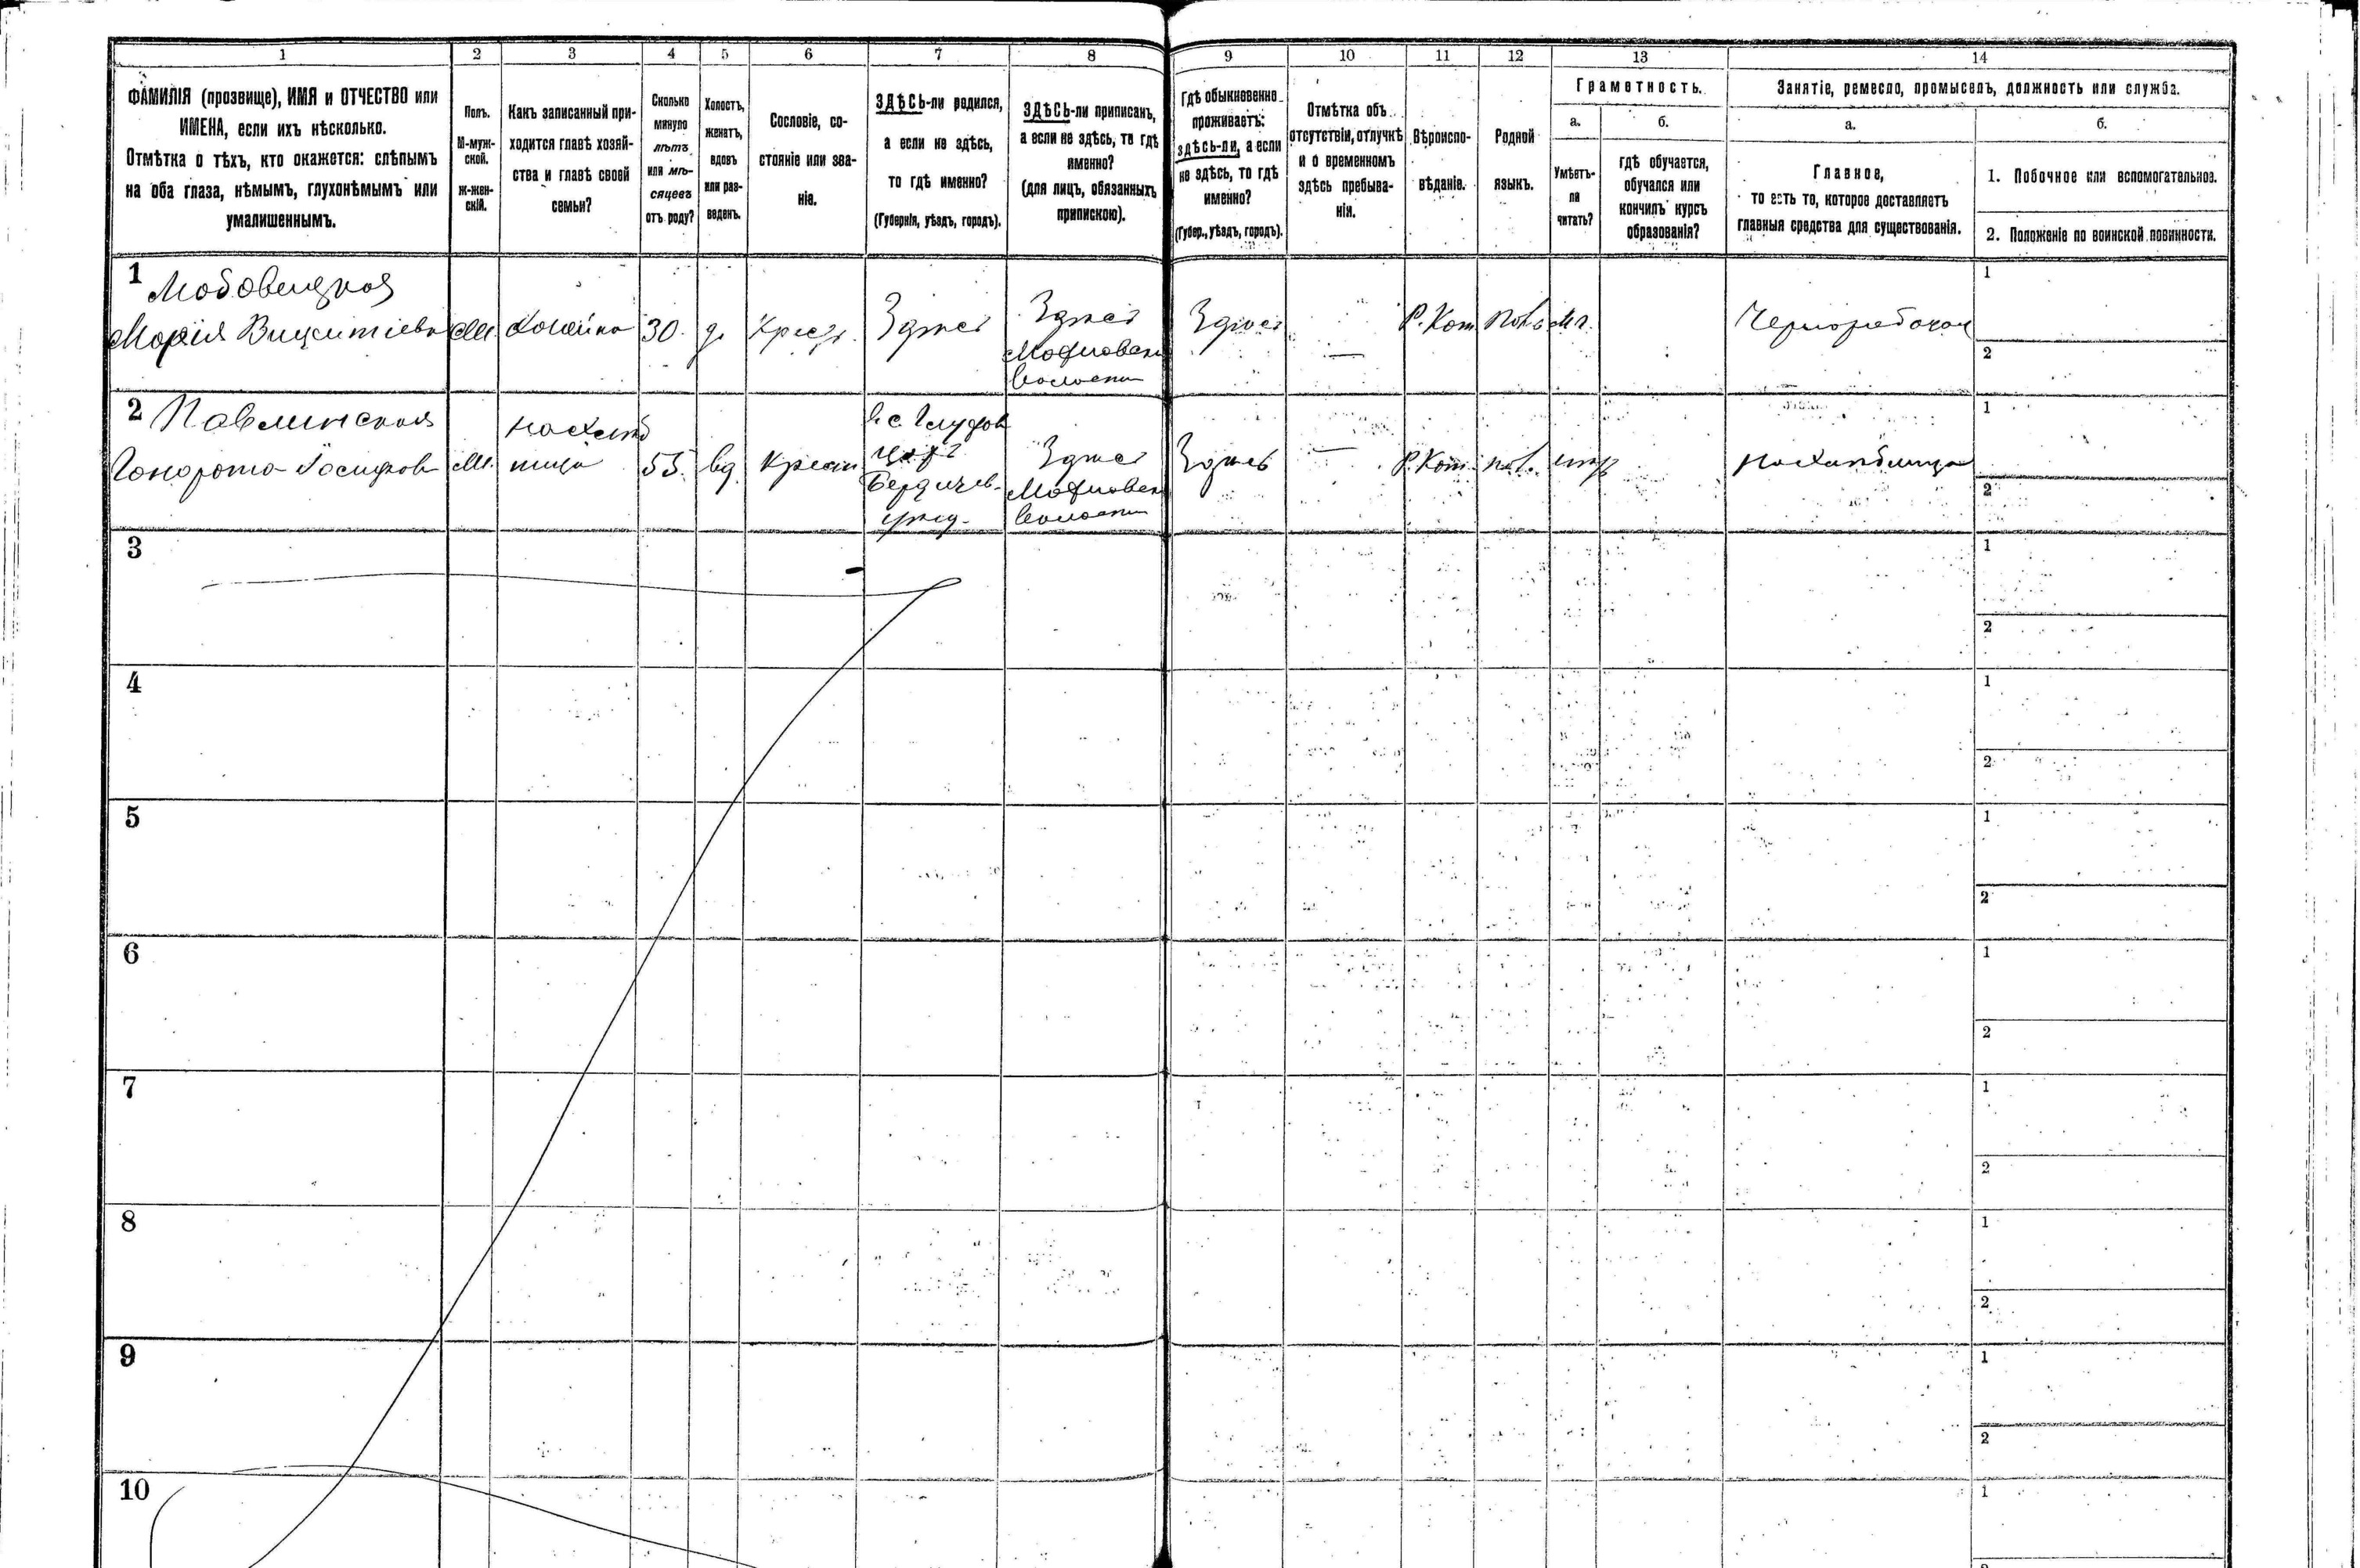 1 2 3 4 5 6 7 8 9 10 11 12 13 14
ФАМИЛІЯ (прозвище), ИМЯ и ОТЧЕСТВО или
ИМЕНА, если ихъ нѣсколько.
Отмѣтка о тѣхъ, кто окажется: слѣпымъ
на оба глаза, нѣмымъ, глухонѣмымъ или
умалишеннымъ.
Полъ.
М-муж-
ской.
ж-жен-
скій.
Какъ записанный при-
ходится главѣ хозяй-
ства и главѣ своей
семьи?
Сколько
минуло
лѣтъ
или мѣ-
сяцевъ
отъ роду?
Холостъ,
женатъ,
вдовъ
или раз-
веденъ.
Сословіе, со-
стояніе или зва-
ніе.
ЗДѢСЬ-ли родился,
а если не здѣсь,
то гдѣ именно?
(Губернія, уѣздъ, городъ).
ЗДѢСЬ-ли приписанъ,
а если не здѣсь, то гдѣ
именно?
(для лицъ, обязанныхъ
припискою).
Гдѣ обыкновенно
проживаетъ:
здѣсь-ли, а если
не здѣсь, то гдѣ
именно?
(Губер., уѣздъ, городъ).
Отмѣтка объ
отсутствіи, отлучкѣ
и о временномъ
здѣсь пребыва-
ніи.
Вѣроиспо-
вѣданіе.
Родной
языкъ.
Грамотность.
а.
Умѣетъ-
ли
читать?
б.
гдѣ обучается,
обучался или
кончилъ курсъ
образованія?
Занятіе, ремесло, промыселъ, должность или служба.
а.
Главное,
то есть то, которое доставляетъ
главныя средства для существованія.
б.
1. Побочное или вспомогательное.
2. Положеніе по воинской повинности.
1
Марія
30.
д.
Крест.
Здѣсь
Здѣсь
волости
Здѣсь
—
Р. Кат.
Чернорабочая
1
2
2 Павлинская
Гонората
55.
вд.
Крест
Бердичев.
уѣзд.
Здѣсь
волости
Здѣсь
—
Р. Кат.
пол.
1
2
3
1
2
4
1
2
5
1
2
6
1
2
7
1
2
8
1
2
9
1
2
10
1